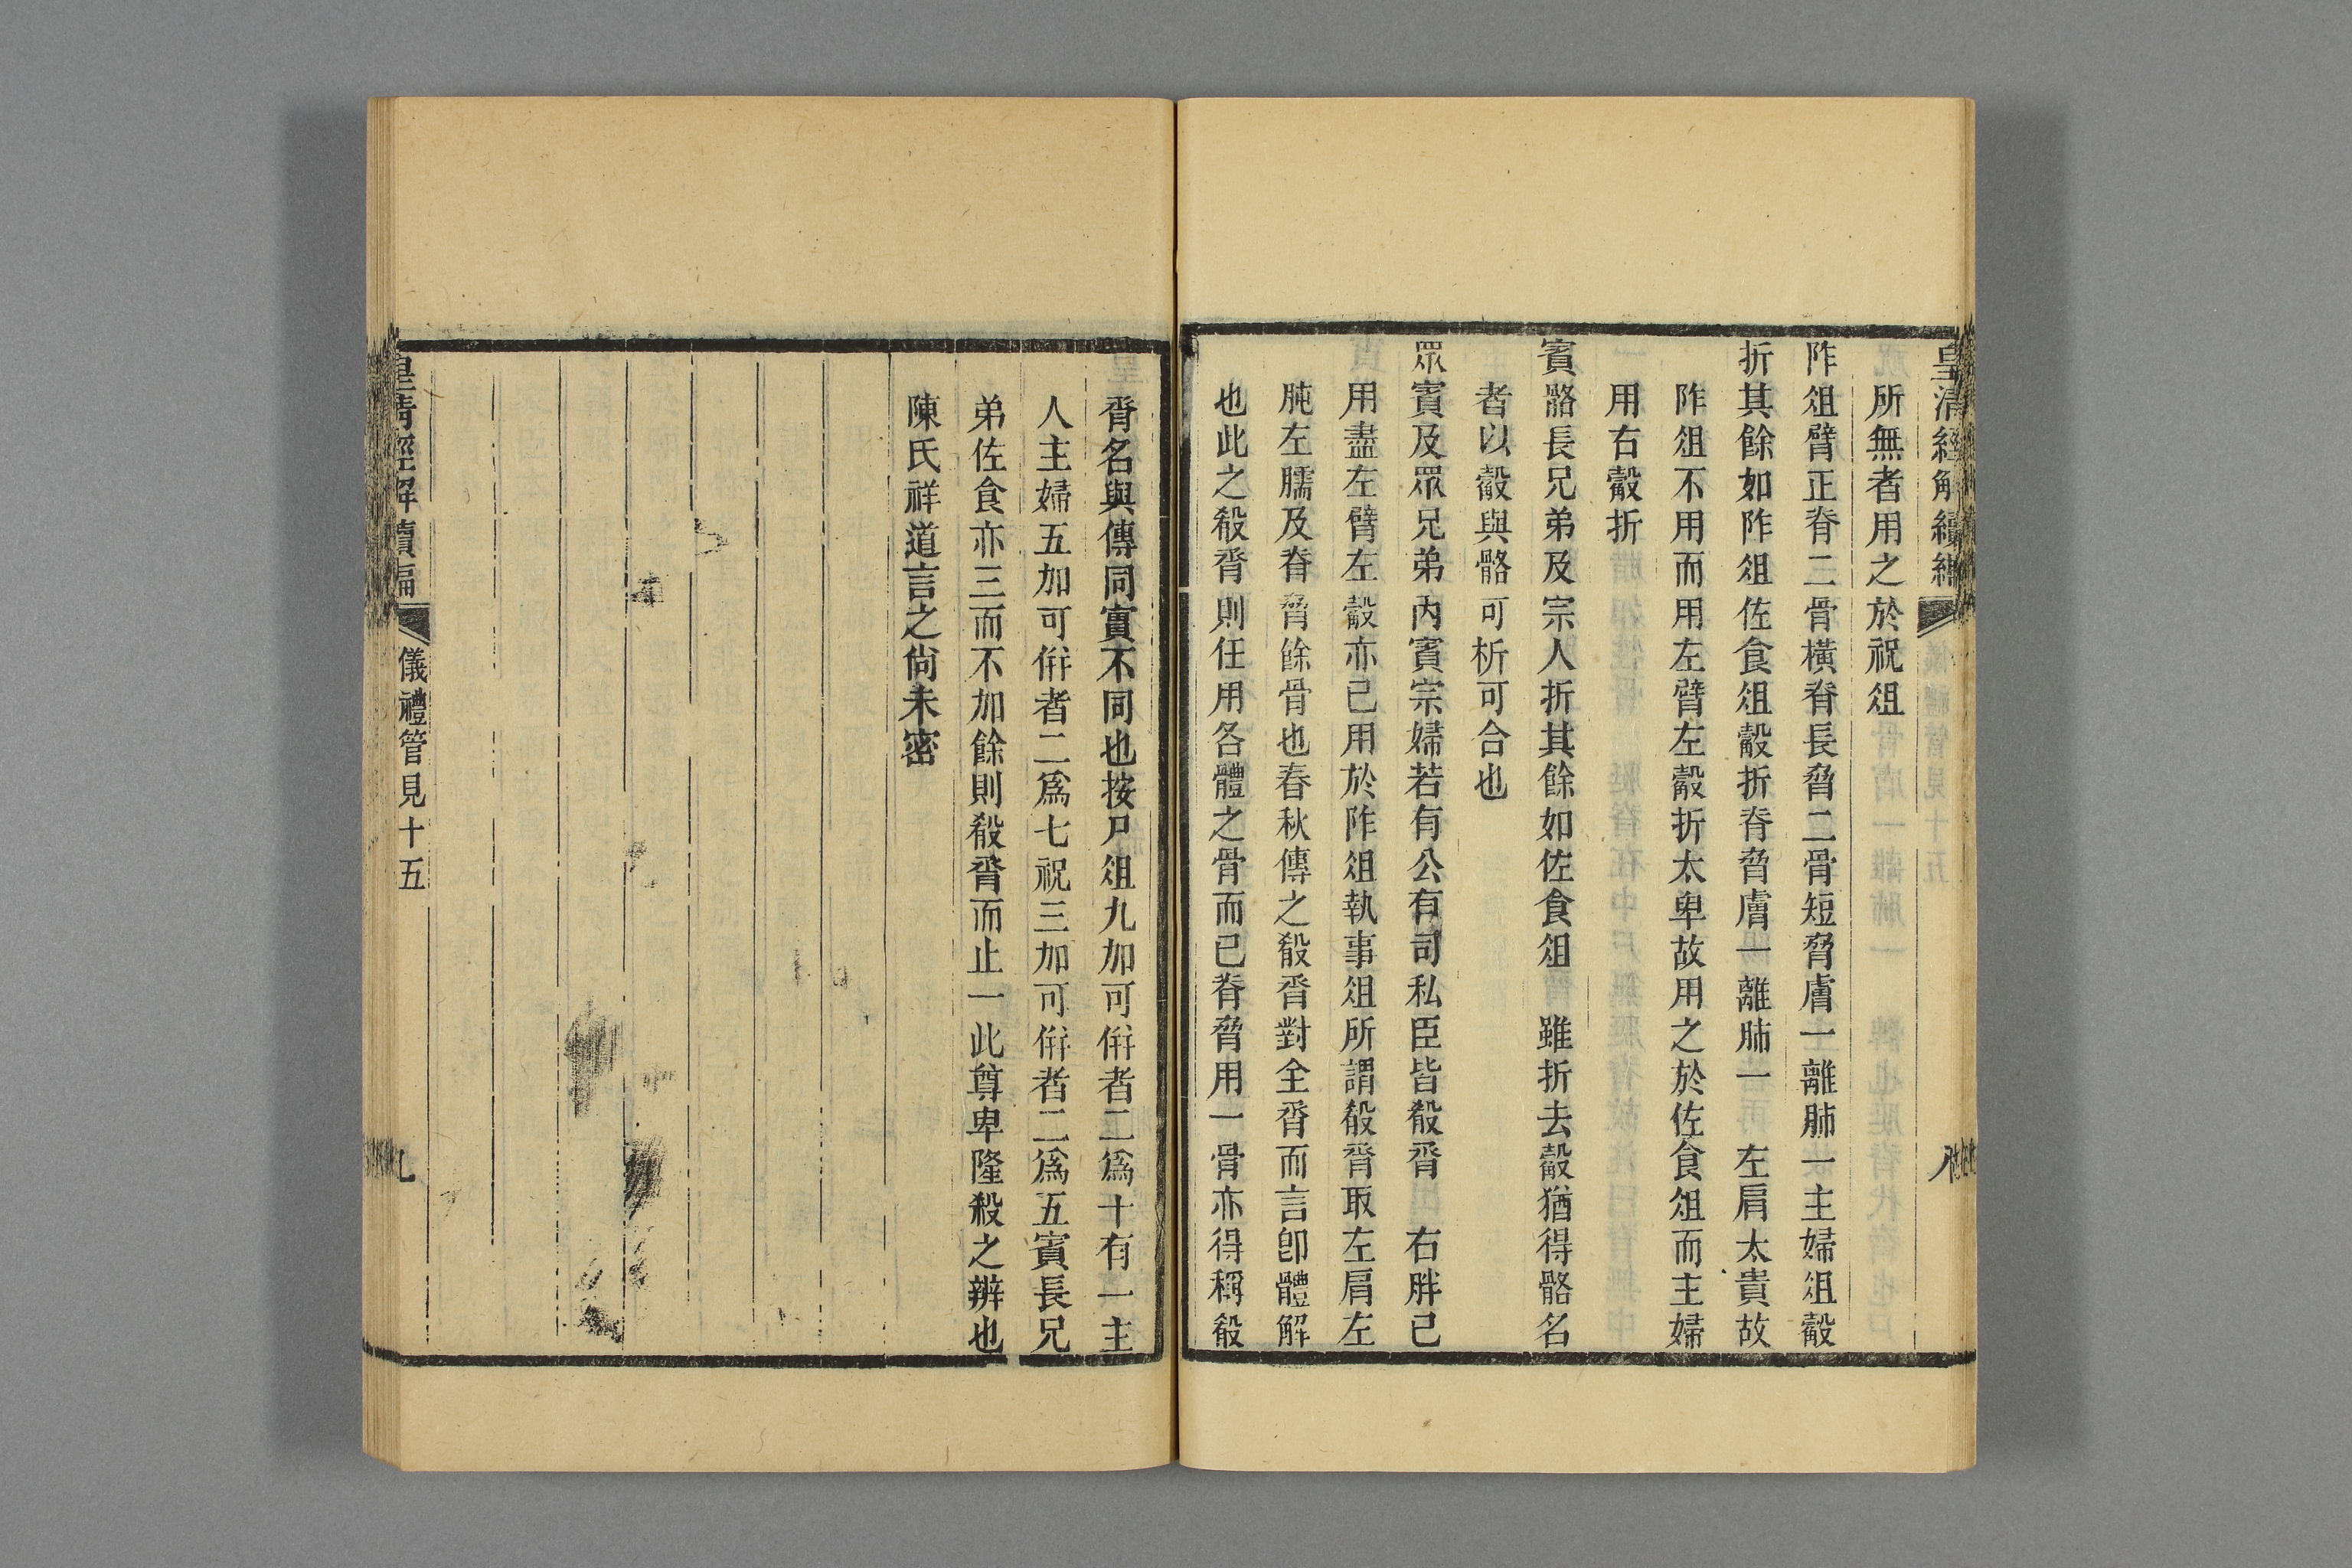 皇清經解續編　　八
所無者用之於祝俎
阼俎臂正脊二骨橫脊長脅二骨短脅膚一離肺一主婦俎觳
折其餘如阼俎佐食俎觳折脊脅膚一離肺一　左肩太貴故
阼俎不用而用左臂左觳折太卑故用之於佐食俎而主婦
用右觳折
賓骼長兄弟及宗人折其餘如佐食俎　雖折去觳猶得骼名
者以觳與骼可析可合也
眾賓及眾兄弟內賓宗婦若有公有司私臣皆殽脀　右胖已
用盡左臂左觳亦已用於阼俎執事俎所謂殽脀取左肩左
肫左臑及脊脅餘骨也春秋傳之殽脀對全脀而言卽體解
也此之殽脀則任用各體之骨而已脊脅用一骨亦得稱殽
脀名與傳同實不同也按尸俎九加可倂者二爲十有一主
人主婦五加可倂者二爲七祝三加可倂者二爲五賓長兄
弟佐食亦三而不加餘則殽脀而止一此尊卑隆殺之辨也
陳氏祥道言之尙未密
皇清經解續編　儀禮管見十五　九